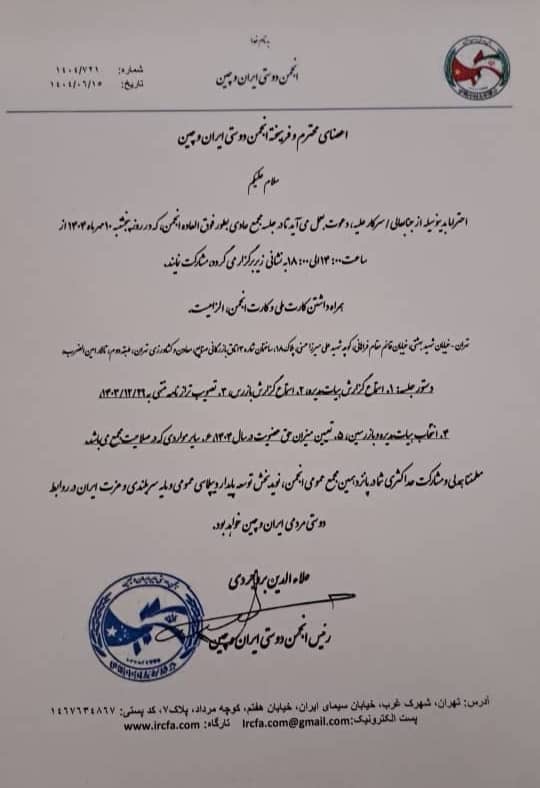 بنام خدا
انجمن دوستی ایران و چین
شماره: ۱۴۰۴/۷۲۱
تاریخ: ۱۴۰۴/۰۶/۱۵
اعضای محترم و فرهیخته انجمن دوستی ایران و چین
سلام علیکم
احتراما بدینوسیله از جنابعالی / سرکار علیه، دعوت بعمل می آید تا در جلسه مجمع عادی بطور فوق العاده انجمن، که در روز پنجشنبه ۱۰ مهرماه ۱۴۰۴ از
ساعت ۱۴:۰۰ الی ۱۸:۰۰ به نشانی زیر برگزار می گردد، مشارکت نمایند.
همراه داشتن کارت ملی و کارت انجمن، الزامیست.
تهران - خیابان شهید بهشتی، خیابان قائم مقام فراهانی، کوچه شهید علی میرزا حسنی، پلاک ۱۸، ساختمان شماره ۲ اتاق بازرگانی صنایع، معادن و کشاورزی تهران، طبقه دوم، تالار امین الضرب.
دستور جلسه: ۱. استماع گزارش هیات مدیره، ۲. استماع گزارش بازرس، ۳. تصویب ترازنامه منتهی به ۱۴۰۳/۱۲/۲۹
۴. انتخاب هیات مدیره و بازرسین، ۵. تعیین میزان حق عضویت در سال ۱۴۰۴، ۶. سایر مواردی که در صلاحیت مجمع می باشد.
مطمئنا همدلی و مشارکت حداکثری شما در پانزدهمین مجمع عمومی انجمن، نوید بخش توسعه پایدار دیپلماسی عمومی و مایه سربلندی و عزت ایران در روابط
دوستی مردمی ایران و چین خواهد بود.
علاءالدین بروجردی
رئیس انجمن دوستی ایران و چین
آدرس: تهران، شهرک غرب، خیابان سیمای ایران، خیابان هفتم، کوچه مرداد، پلاک ۷، کد پستی: ۱۴۶۷۶۳۴۸۶۷
پست الکترونیک: Ircfa.com@gmail.com تارگاه: www.ircfa.com